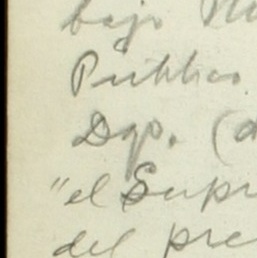 bajo
Público
Dgo. (d
"el Supr
del pre